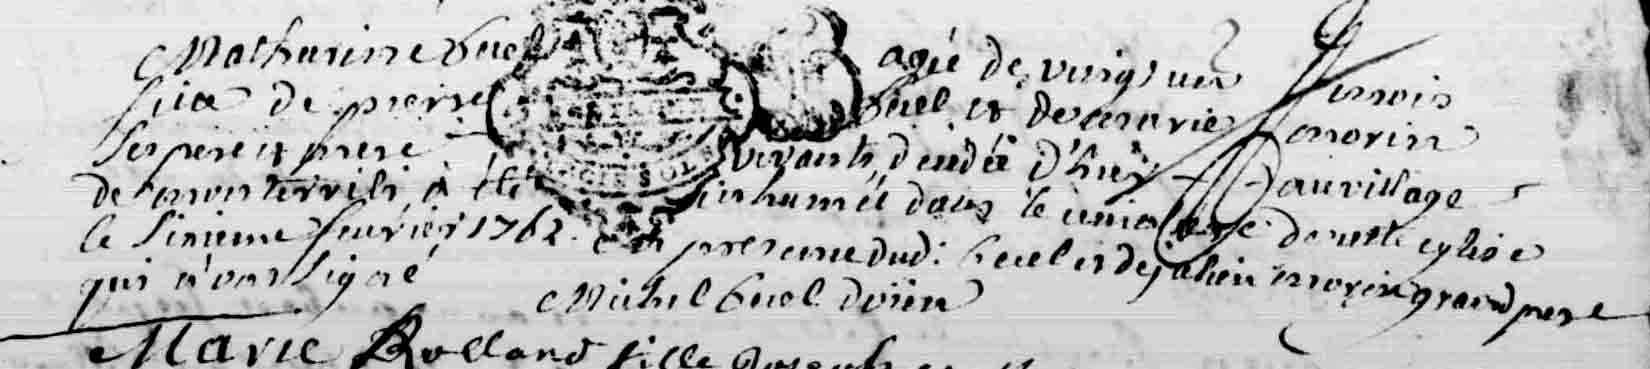 Mathurine Guel agée de vingt un mois
fille de pierre Guel et de marie morin
ses pere et mere vivants, decedée d'hier au village
de a été inhumée dans le cimetiere de cette eglise
le sixieme fevrier 1762. en presence dud: Guel et de julien morin grand pere
qui n'ont signé
Michel Guel doïen
Marie Rolland fille